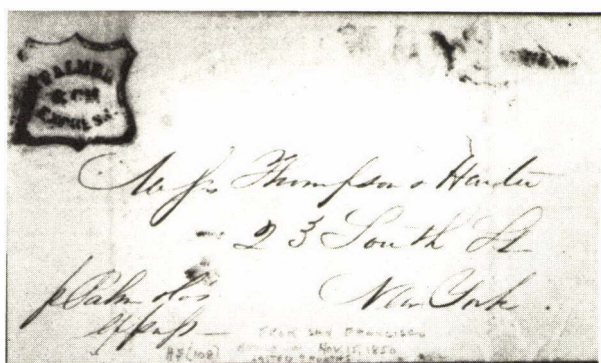 PALMER
& CO'S
EXPRESS.
Messrs Thompson & Hunter
23 South St
New York.
p Palm & Co's
Express
FROM SAN FRANCISCO
Nov. 15, 1850